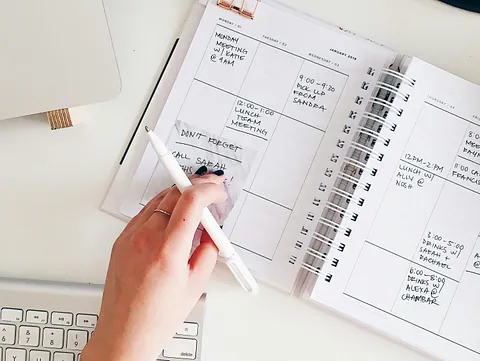 MONDAY / 01
TUESDAY / 02
WEDNESDAY / 03
JANUARY 2018
MONDAY
MEETING
W/ KATIE
@ 9AM
9:00-9:20
PICK UP
FROM
SANDRA
12:00-1:00
LUNCH
TEAM
MEETING
DON'T FORGET
CALL SARAH
THIS
!
12PM-2PM
LUNCH W/
ALLY @
NOSH
3:00-5:00
DRINKS W/
SARAH +
RACHAEL
6:00-8:00
DRINKS W/
ALEXA @
CHAMBAR
8:00
MEETI
11:00
CALL
FRANCIS